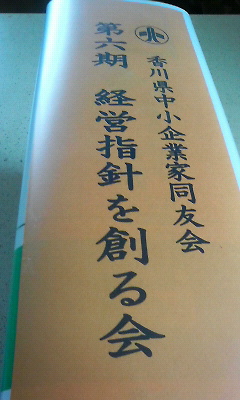 香川県中小企業家同友会
第六期 経営指針を創る会